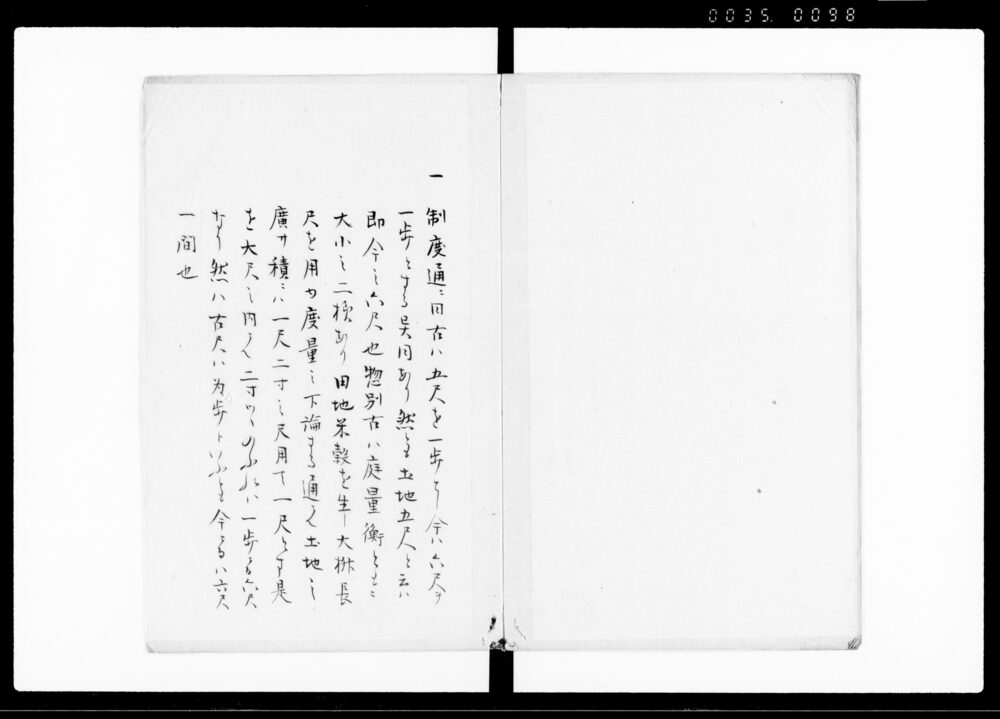 0035. 0098
一 制度通ニ曰古ハ五尺を一歩トシ今ハ六尺ヲ
一歩とする異同あり然とも土地五尺と云ハ
即今之六尺也惣別古ハ度量衡ともニ
大小之二様あり田地米穀を生し大桝長
尺を用ゆ度量之下論する通にて土地之
廣サ積ニハ一尺二寸之尺用て一尺とす是
を大尺之内にて二寸ツヽのふれハ一歩にて六尺
なり然ハ古尺ハ為歩トいふとも今にてハ六尺
一間也